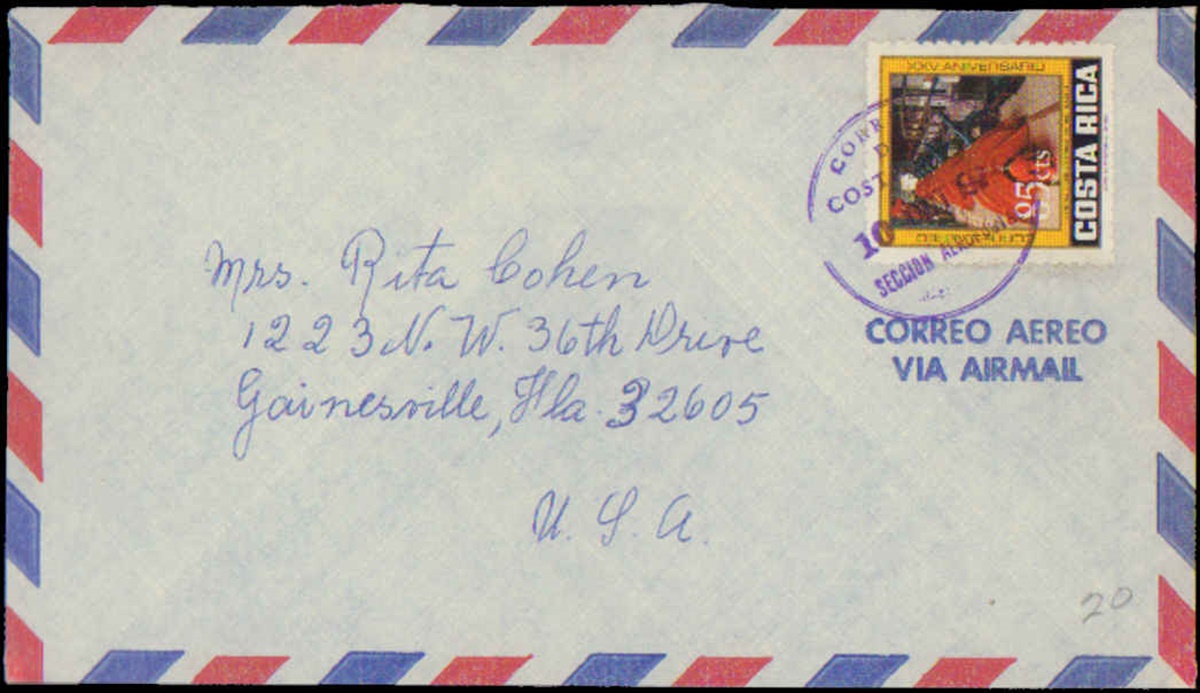 XXV ANIVERSARIO
COSTA RICA
85 cts
CORR
COST
10
SECCION
CORREO AEREO
VIA AIRMAIL
Mrs. Rita Cohen
1223 N. W. 36th Drive
Gainesville, Fla. 32605
U. S. A.
20